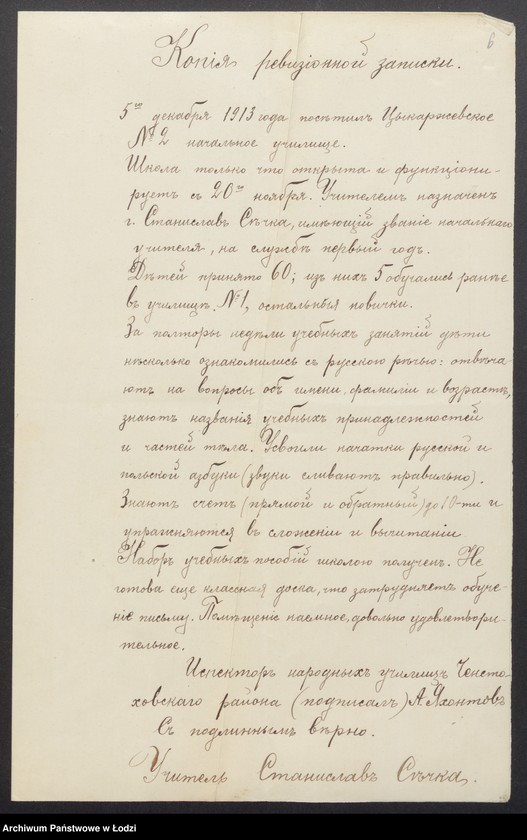 6
Копія ревизіонной записки.
5го декабря 1913 года посѣтилъ Цыкаржевское
№ 2 начальное училище.
Школа только что открыта и функціони-
руетъ съ 20го ноября. Учителемъ назначенъ
г. Станиславъ Сѣчка, имѣющій званіе начальнаго
учителя, на службѣ первый годъ.
Дѣтей принято 60; изъ нихъ 5 обучались ранѣе
въ училищѣ № 1, остальныя новички.
За полторы недѣли учебныхъ занятій дѣти
нѣсколько ознакомились съ русскою рѣчью: отвѣча-
ютъ на вопросы объ имени, фамиліи и возрастѣ,
знаютъ названія учебныхъ принадлежностей
и частей тѣла. Усвоили начатки русской и
польской азбуки (звуки сливаютъ правильно).
Знаютъ счетъ (прямой и обратный) до 10-ти и
упражняются въ сложеніи и вычитаніи.
Наборъ учебныхъ пособій школою полученъ. Не
готова еще классная доска, что затрудняетъ обуче-
ніе письму. Помѣщеніе наемное, довольно удовлетвори-
тельное.
Инспекторъ народныхъ училищъ Ченсто-
ховскаго района (подписалъ) А. Яхонтовъ
Съ подлиннымъ вѣрно.
Учитель Станиславъ Сѣчка.
Archiwum Państwowe w Łodzi